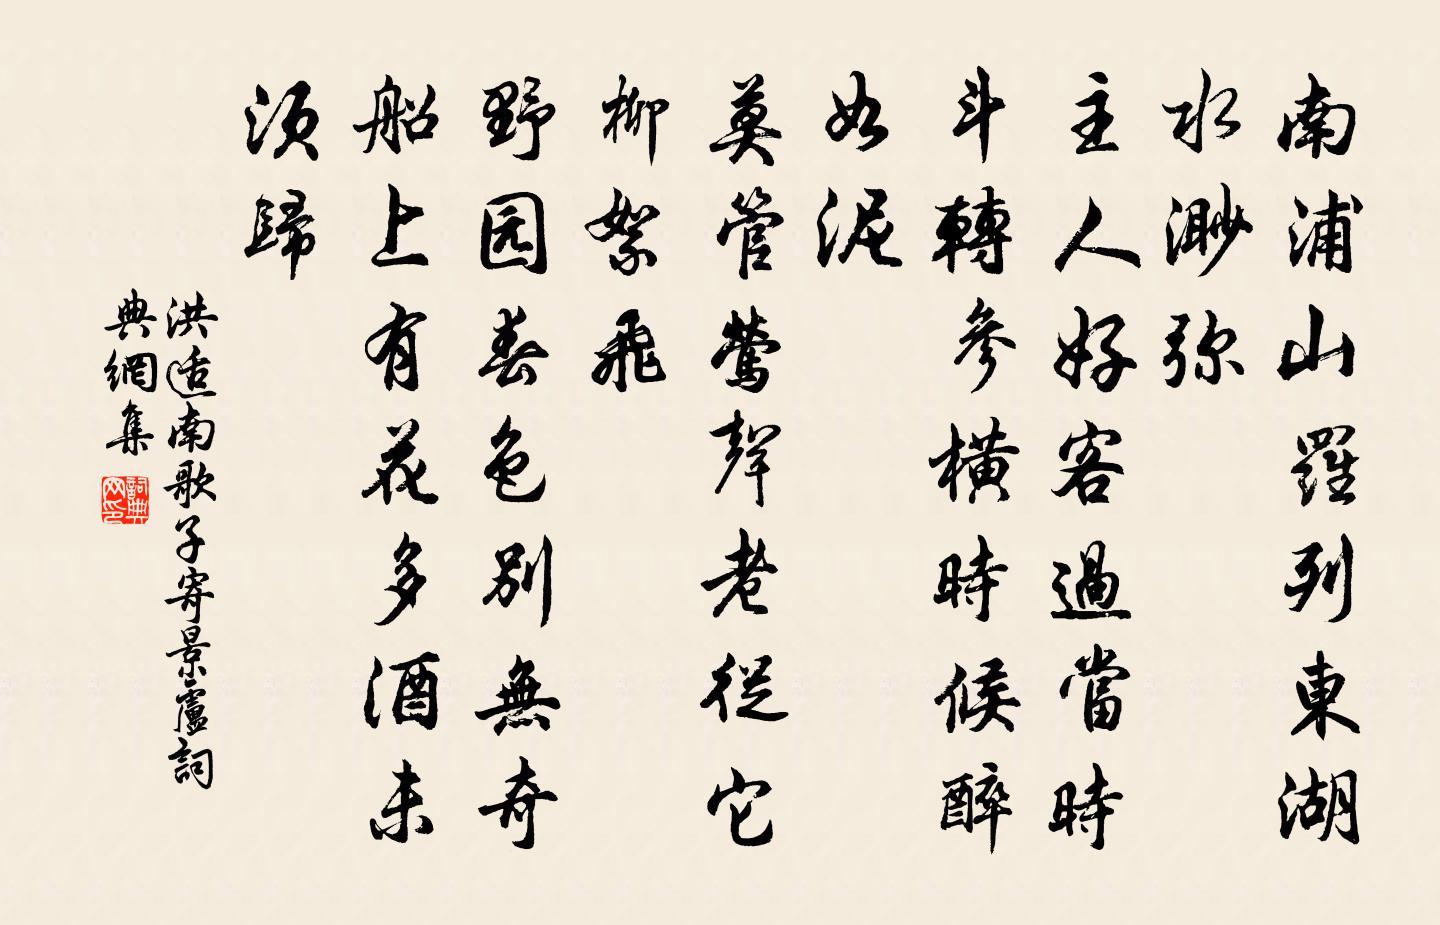 南浦山羅列東湖
水渺弥
主人好客過當時
斗轉參橫時候醉
如泥
莫管鶯聲老從它
柳絮飛
野园春色別無奇
船上有花多酒未
須歸
洪适南歌子寄景盧詞
典網集
詞典网印